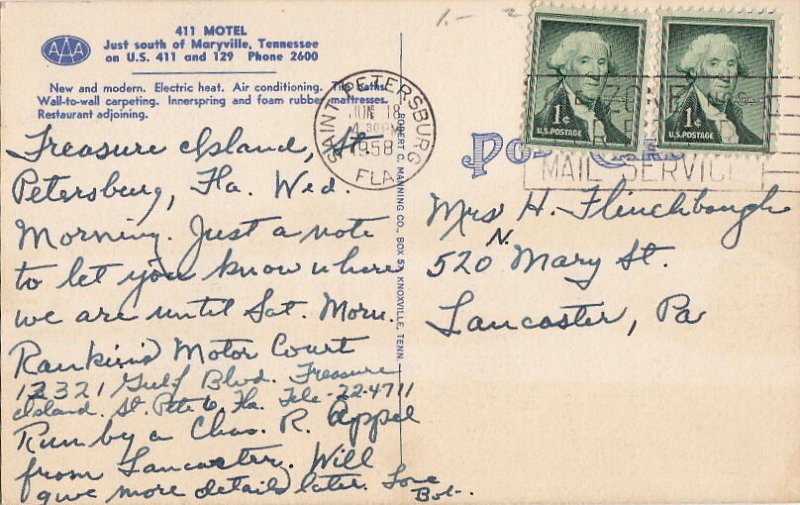 1.- 2
411 MOTEL
AAA
Just south of Maryville, Tennessee
on U.S. 411 and 129 Phone 2600
New and modern. Electric heat. Air conditioning. Tile baths.
Wall-to-wall carpeting. Innerspring and foam rubber mattresses.
Restaurant adjoining.
Treasure Island, St
Petersburg, Fla. Wed.
Morning. Just a note
to let you know where
we are until Sat. Morn.
Rankin's Motor Court
12321 Gulf Blvd. Treasure
Island. St. Pete 6, Fla. Tele-22-4711
Run by a Chas. R. Appel
from Lancaster. Will
give more details later. Love
Bob.
SAINT PETERSBURG
JUN 18
30PM
1958
FLA.
ROBERT C. MANNING CO., BOX 57, KNOXVILLE, TENN.
POST CARD
MAIL SERVICE
1¢
U.S. POSTAGE
1¢
U.S. POSTAGE
Mrs H. Flinchbaugh
520 N. Mary St.
Lancaster, Pa